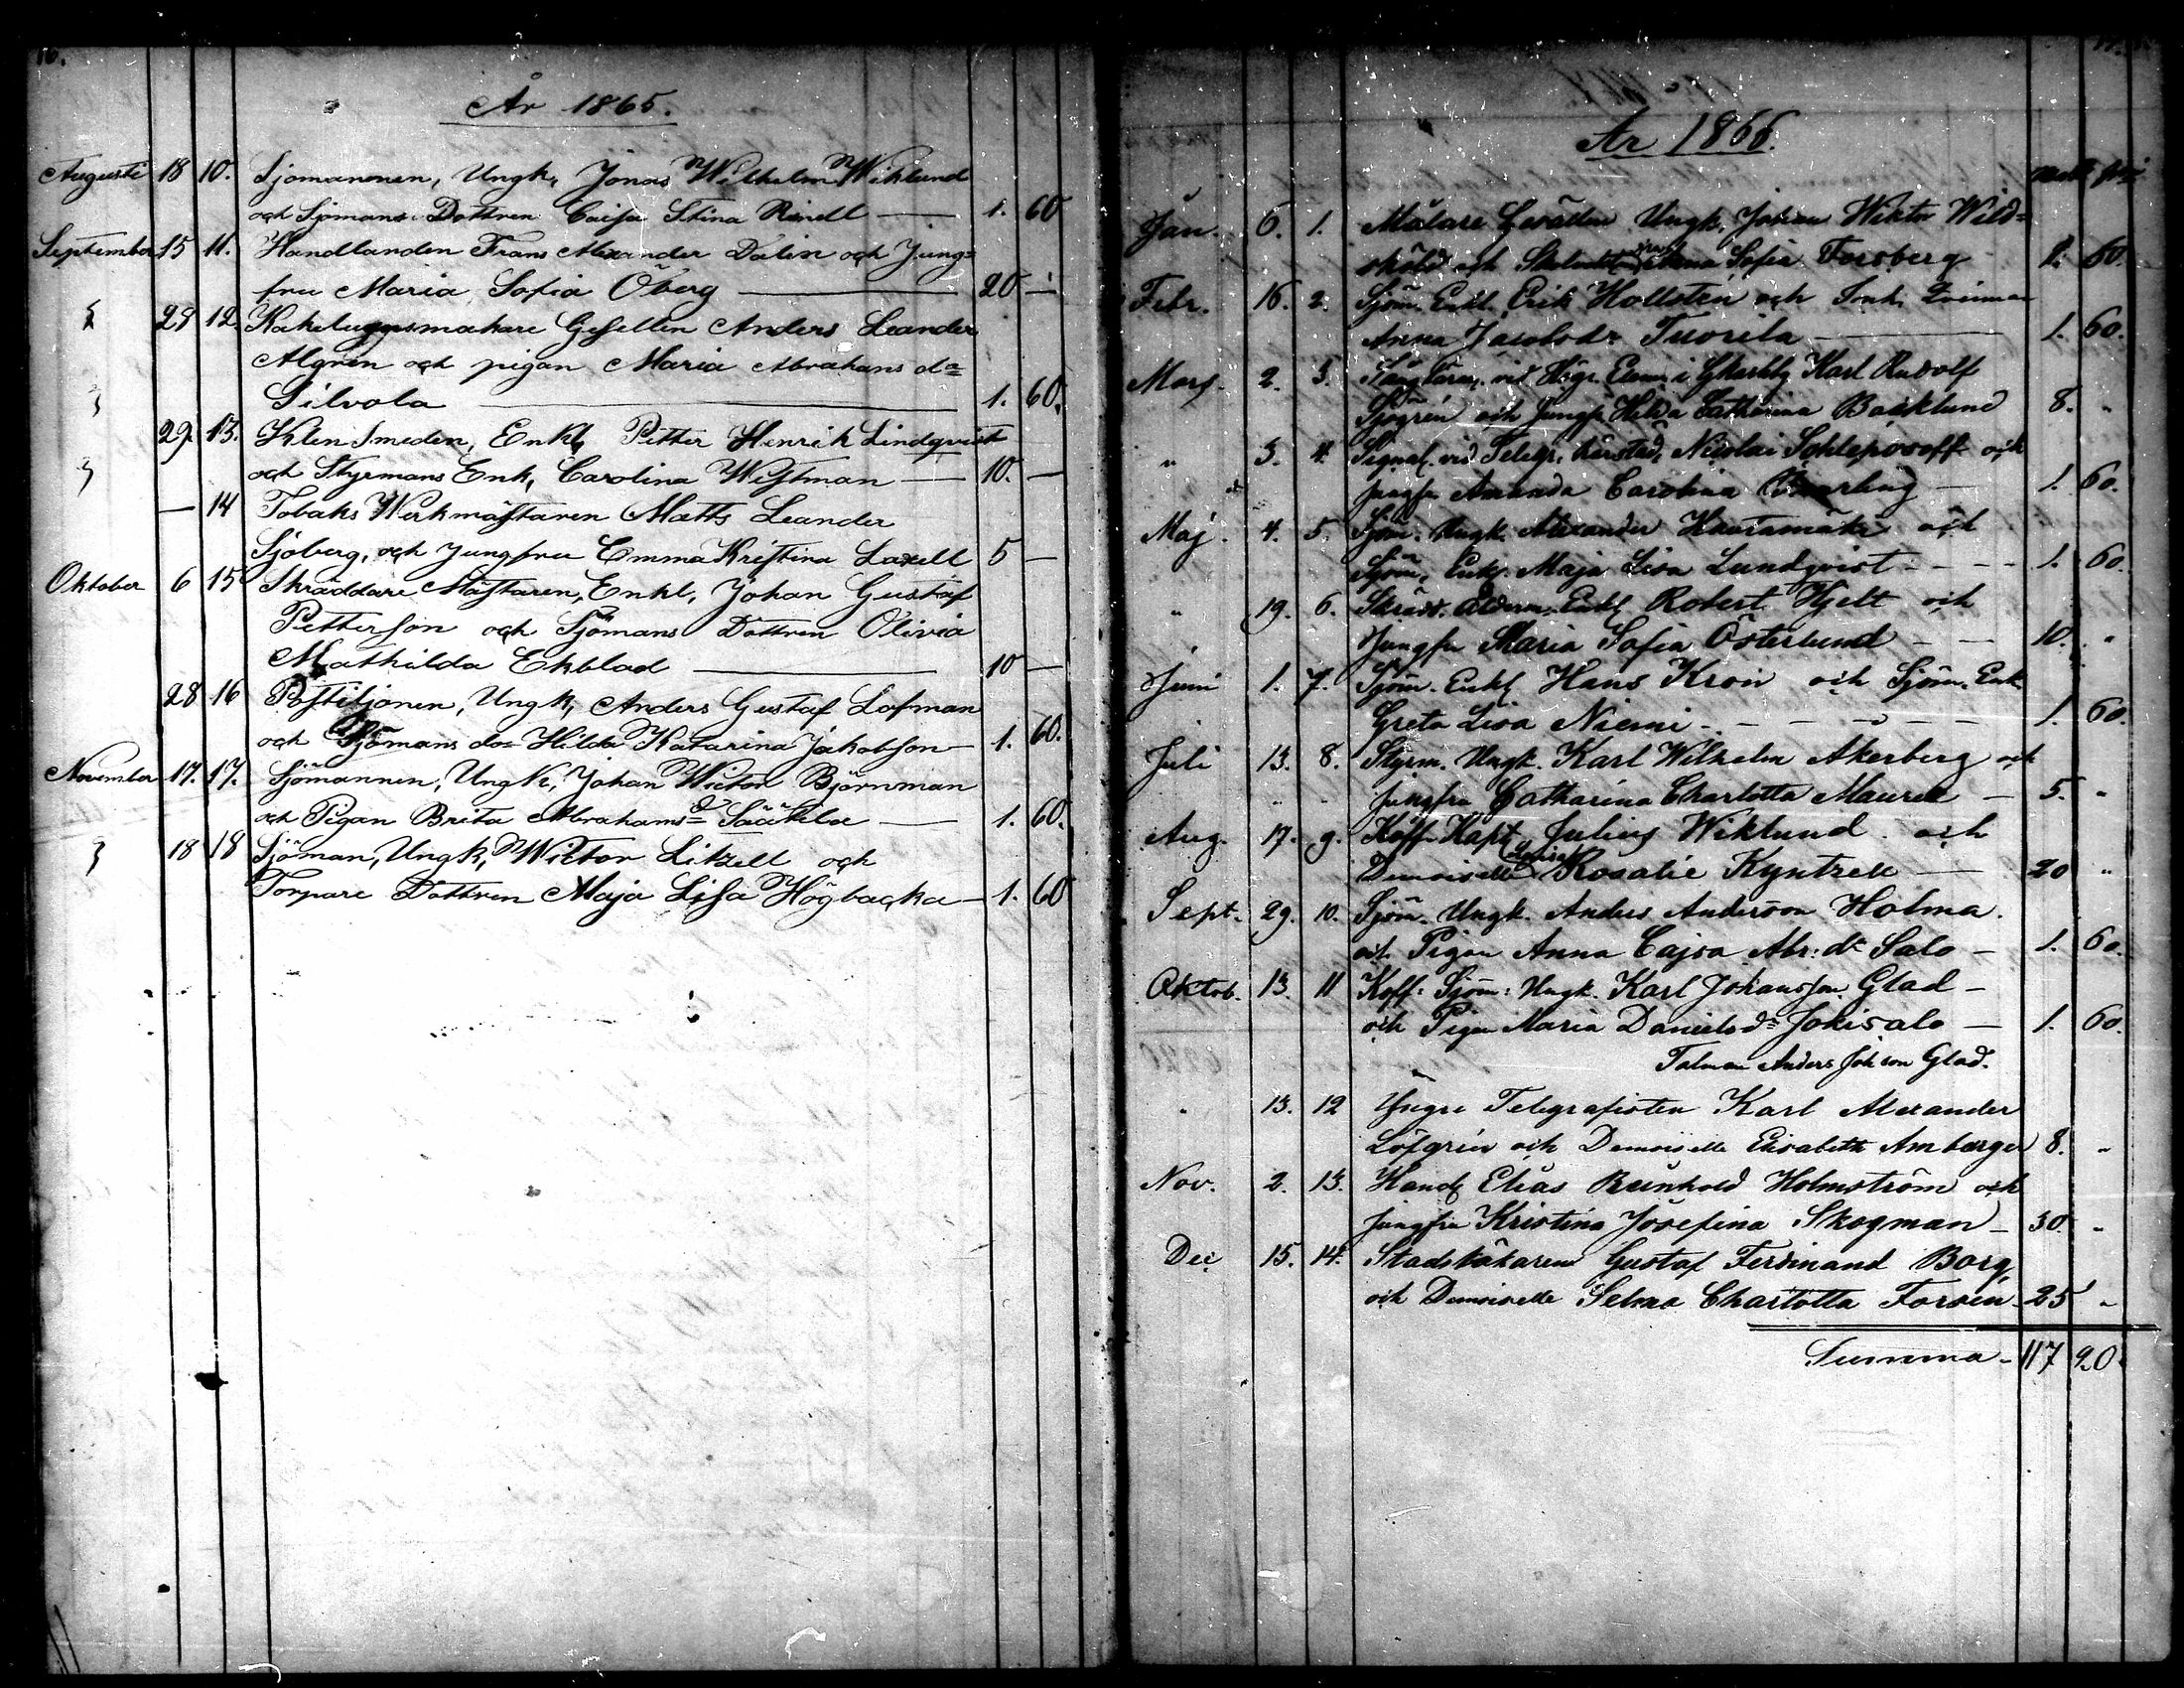 10.
År 1865.
Augusti 18 10. Sjömannen, Ungk, Jonas Wilhelm Wiklund
och Sjömans Dottren Caisa Stina Rindell — 1. 60
September 15 11. Handlanden Frans Alexander Dalin och Jung=
fru Maria Sofia Öberg — 20 —
28 12 Kakelugnsmakare Gesellen Anders Leander
Algren och pigan Maria Abrahans dr
Silvola — 1. 60.
29. 13. Klensmeden, Enkl, Petter Henrik Lindqvist
och Styrmans Enk, Carolina Westman — 10. —
— 14 Tobaks Werkmästaren Matts Leander
Sjöberg, och Jungfru Emma Kristina Laxell 5 —
Oktober 6 15 Skräddare Mästaren, Enkl, Johan Gustaf
Petterson och Sjömans Dottren Olivia
Mathilda Ekblad — 10 —
28 16 Postiljonen, Ungk, Anders Gustaf Lofman
och Sjömans dr Hilda Katarina Jakobson — 1. 60.
November 17. 17. Sjömannen, Ungk, Johan Wictor Björnman
och Pigan Brita Abrahams dr Säätelä — 1. 60.
18 18 Sjöman, Ungk, Wictor Litzell och
Torpare Dottren Maja Lisa Högbacka — 1. 60
År 1866.
Jan. 6. 1. Målare Gesällen Ungk. Johan Wiktor Wild=
sköld och Sofia Forsberg 1. 60.
Febr. 16. 2. Sjöm. Enkl. Erik Hollstén och
Anna Jacobsdr Tuorila — 1. 60.
Mars 2. 3. vid i Karl Rudolf
Sjögrén och Jungfr Hilda Catharina Backlund 8. "
" 3. 4. Signal. vid Telegr. Nicolai Schleposoff och
jungfr Amanda Carolina — 1. 60.
Maj. 4. 5. Sjöm. Ungk. Alexander Hautamäki och
Sjöm. Enk. Maja Lisa Lundqvist - - - - 1. 60.
" 19. 6. Skrädd. Ålderm. Enkl Robert Hjelt och
Jungfr Maria Sofia Österlund - — 10. "
Juni 1. 7. Sjöm. Enkl Hans Kron och Sjöm. Enk.
Greta Lisa Niemi - - - - - 1. 60.
Juli 13. 8. Styrm. Ungk. Karl Wilhelm Åkerberg och
jungfru Catharina Charlotta Maurell — 5. "
Aug. 17. 9. Koff. Kapt Julius Wiklund och
Demoiselle Rosalie Kyntzell — 20 "
Sept. 29. 10. Sjöm. Ungk. Anders Anderson Holma.
och Pigan Anna Cajsa Abr: dr Salo — 1. 60.
Oktob. 13. 11 Koff: Sjöm: Ungk. Karl Johansson Glad —
och Pigan Maria Danielsdr Jokisalo — 1. 60.
Talman Anders Joh son Glad.
" 13. 12 Yngre Telegrafisten Karl Alexander
Löfgrén och Demoiselle Elisabeth Amberger 8. "
Nov. 2. 13. Handl Elias Reinhold Holmström och
jungfru Kristina Josefina Skogman — 30. "
Dec 15. 14. Stadsläkaren Gustaf Ferdinand Borg
och Demoiselle Selma Charlotta Forsén - 25 "
Summa - 117 90.